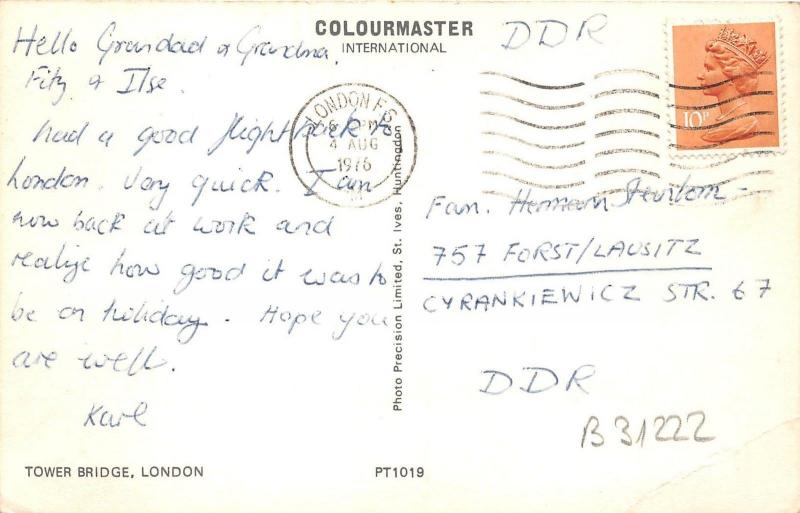 COLOURMASTER
INTERNATIONAL
Hello Grandad & Grandma,
Fitz & Ilse.
had a good flight back to
London. Very quick. I am
now back at work and
realize how good it was to
be on holiday. Hope you
are well.
Karl
TOWER BRIDGE, LONDON
PT1019
Photo Precision Limited, St. Ives, Huntingdon
LONDON F.S.
PM
4 AUG
1976
10P
DDR
Fam. Hermann
757 FORST/LAUSITZ
CYRANKIEWICZ STR. 67
DDR
B31222